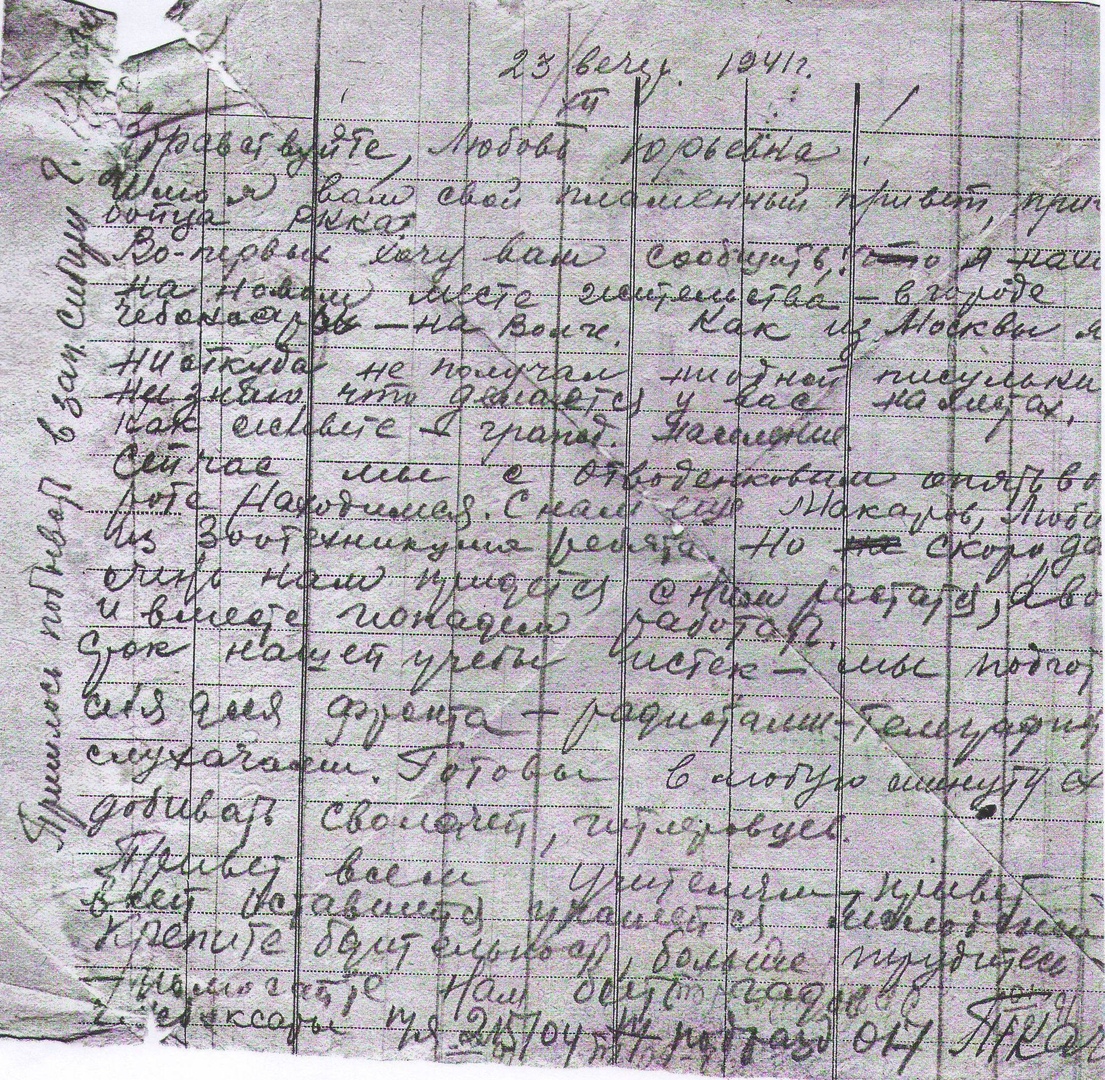 23 вечер. 1941г.
XII
Здравствуйте, Любовь Юрьевна.
Шлю я вам свой пламенный привет, при
бойца РККА.
Во-первых хочу вам сообщить: что я нах
на новом месте жительства – в городе
Чебоксары – на Волге. Как из Москвы я
ниоткуда не получал ниодной писульки
не знаю что делается у вас на местах.
Как живете – гражд. население.
Сейчас мы с Отводенковым опять в
роте находимся. С нам еще Макаров, Люби
из Зоотехникума ребята. Но не скоро
очень нам придется с ним растатся, а во
и вместе попадем работат.
Срок нашей учебы истек – мы подгот
для фронта – радистами-телеграфи
слухачами. Готовы в любую минуту
добивать сволочей, гитлеровцев.
Привет всем учителям, привет
всей оставшейся учащейся молодежи
Крепите бдительность, больше трудитесь
– помогайте нам бить гадов
г. Чебоксары п/я 215/04 подразд 017 Ткач
Пришлось побывать в зап. Сибири